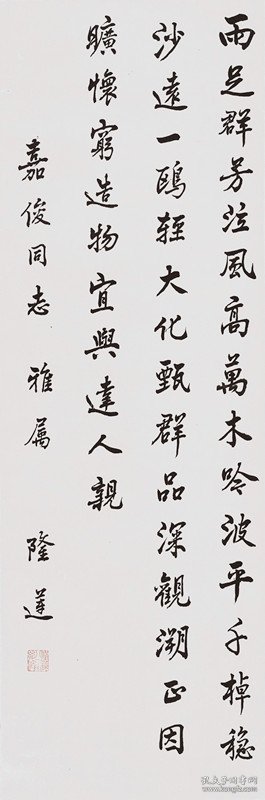 雨足群芳泣風高萬木吟波平千棹穩
沙遠一鷗輕大化甄群品深觀溯正因
曠懷窮造物宜與達人親
嘉俊同志 雅屬 隆蓮
孔夫子旧书网